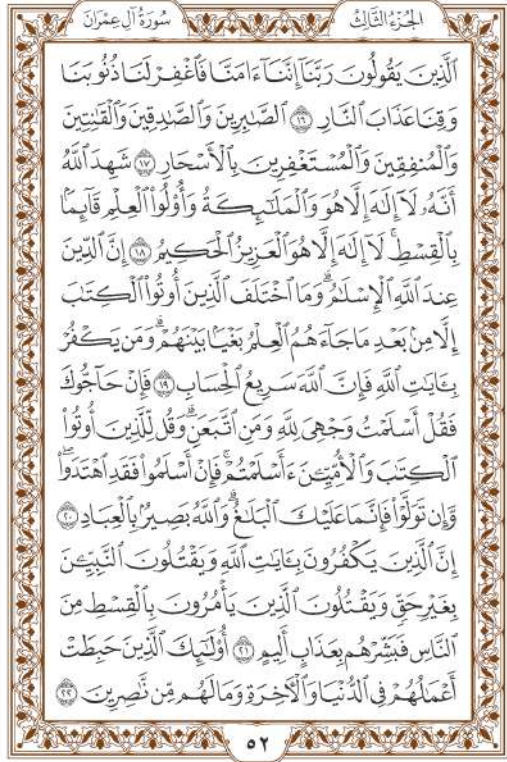 الجُزْءُ الثَّالِثُ
سُورَةُ آلِ عِمْرَانَ
ٱلَّذِينَ يَقُولُونَ رَبَّنَآ إِنَّنَآ ءَامَنَّا فَٱغْفِرْ لَنَا ذُنُوبَنَا
وَقِنَا عَذَابَ ٱلنَّارِ ١٦ ٱلصَّٰبِرِينَ وَٱلصَّٰدِقِينَ وَٱلْقَٰنِتِينَ
وَٱلْمُنفِقِينَ وَٱلْمُسْتَغْفِرِينَ بِٱلْأَسْحَارِ ١٧ شَهِدَ ٱللَّهُ
أَنَّهُۥ لَآ إِلَٰهَ إِلَّا هُوَ وَٱلْمَلَٰٓئِكَةُ وَأُو۟لُوا۟ ٱلْعِلْمِ قَآئِمَۢا
بِٱلْقِسْطِۚ لَآ إِلَٰهَ إِلَّا هُوَ ٱلْعَزِيزُ ٱلْحَكِيمُ ١٨ إِنَّ ٱلدِّينَ
عِندَ ٱللَّهِ ٱلْإِسْلَٰمُۗ وَمَا ٱخْتَلَفَ ٱلَّذِينَ أُوتُوا۟ ٱلْكِتَٰبَ
إِلَّا مِنۢ بَعْدِ مَا جَآءَهُمُ ٱلْعِلْمُ بَغْيَۢا بَيْنَهُمْۗ وَمَن يَكْفُرْ
بِـَٔايَٰتِ ٱللَّهِ فَإِنَّ ٱللَّهَ سَرِيعُ ٱلْحِسَابِ ١٩ فَإِنْ حَآجُّوكَ
فَقُلْ أَسْلَمْتُ وَجْهِىَ لِلَّهِ وَمَنِ ٱتَّبَعَنِۗ وَقُل لِّلَّذِينَ أُوتُوا۟
ٱلْكِتَٰبَ وَٱلْأُمِّيِّـۧنَ ءَأَسْلَمْتُمْۚ فَإِنْ أَسْلَمُوا۟ فَقَدِ ٱهْتَدَوا۟ۖ
وَّإِن تَوَلَّوْا۟ فَإِنَّمَا عَلَيْكَ ٱلْبَلَٰغُۗ وَٱللَّهُ بَصِيرُۢ بِٱلْعِبَادِ ٢٠
إِنَّ ٱلَّذِينَ يَكْفُرُونَ بِـَٔايَٰتِ ٱللَّهِ وَيَقْتُلُونَ ٱلنَّبِيِّـۧنَ
بِغَيْرِ حَقٍّ وَيَقْتُلُونَ ٱلَّذِينَ يَأْمُرُونَ بِٱلْقِسْطِ مِنَ
ٱلنَّاسِ فَبَشِّرْهُم بِعَذَابٍ أَلِيمٍ ٢١ أُو۟لَٰٓئِكَ ٱلَّذِينَ حَبِطَتْ
أَعْمَٰلُهُمْ فِى ٱلدُّنْيَا وَٱلْـَٔاخِرَةِ وَمَا لَهُم مِّن نَّٰصِرِينَ ٢٢
٥٢